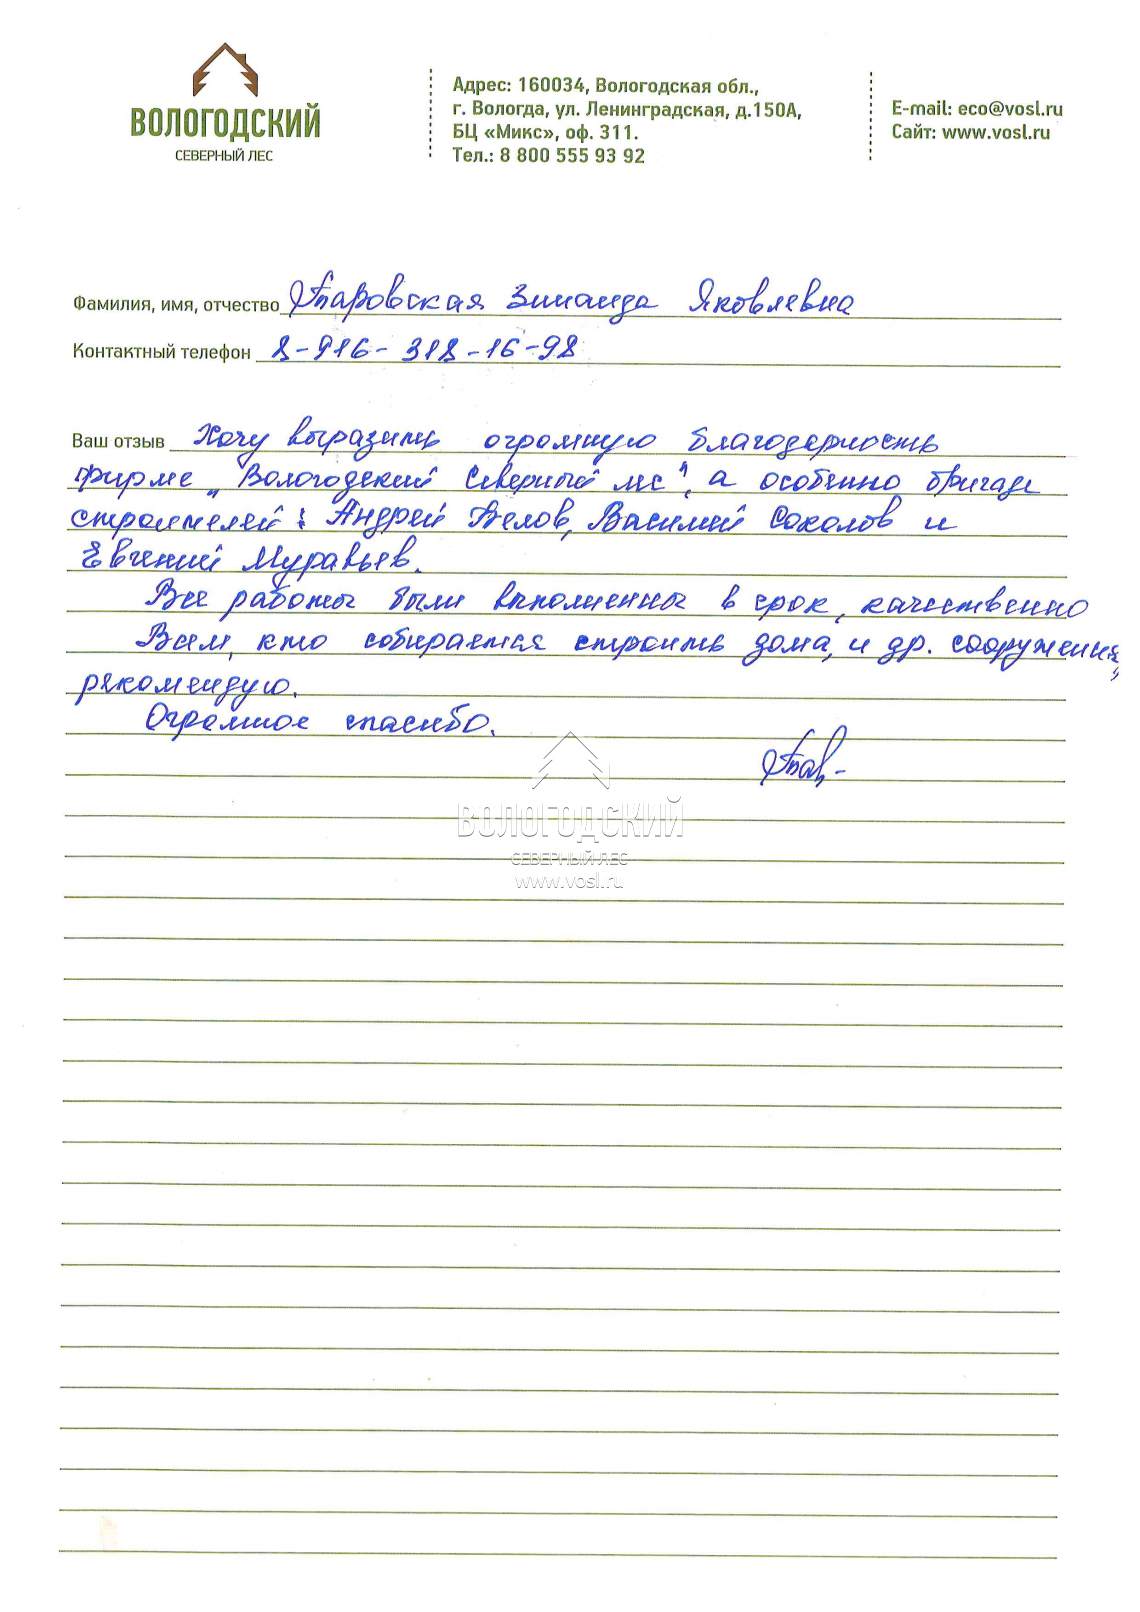 ВОЛОГОДСКИЙ
СЕВЕРНЫЙ ЛЕС
Адрес: 160034, Вологодская обл.,
г. Вологда, ул. Ленинградская, д.150А,
БЦ «Микс», оф. 311.
Тел.: 8 800 555 93 92
E-mail: eco@vosl.ru
Сайт: www.vosl.ru
Фамилия, имя, отчество Зинаида Яковлевна
Контактный телефон 8-916-318-16-98
Ваш отзыв Хочу выразить огромную благодарность
фирме „Вологодский Северный лес", а особенно бригаде
строителей: Андрей Белов, Василий Соколов и
Евгений Муравьев.
Все работы были выполненны в срок, качественно
Всем, кто собирается строить дома, и др. сооружения,
рекомендую.
Огромное спасибо.
ВОЛОГОДСКИЙ
СЕВЕРНЫЙ ЛЕС
www.vosl.ru